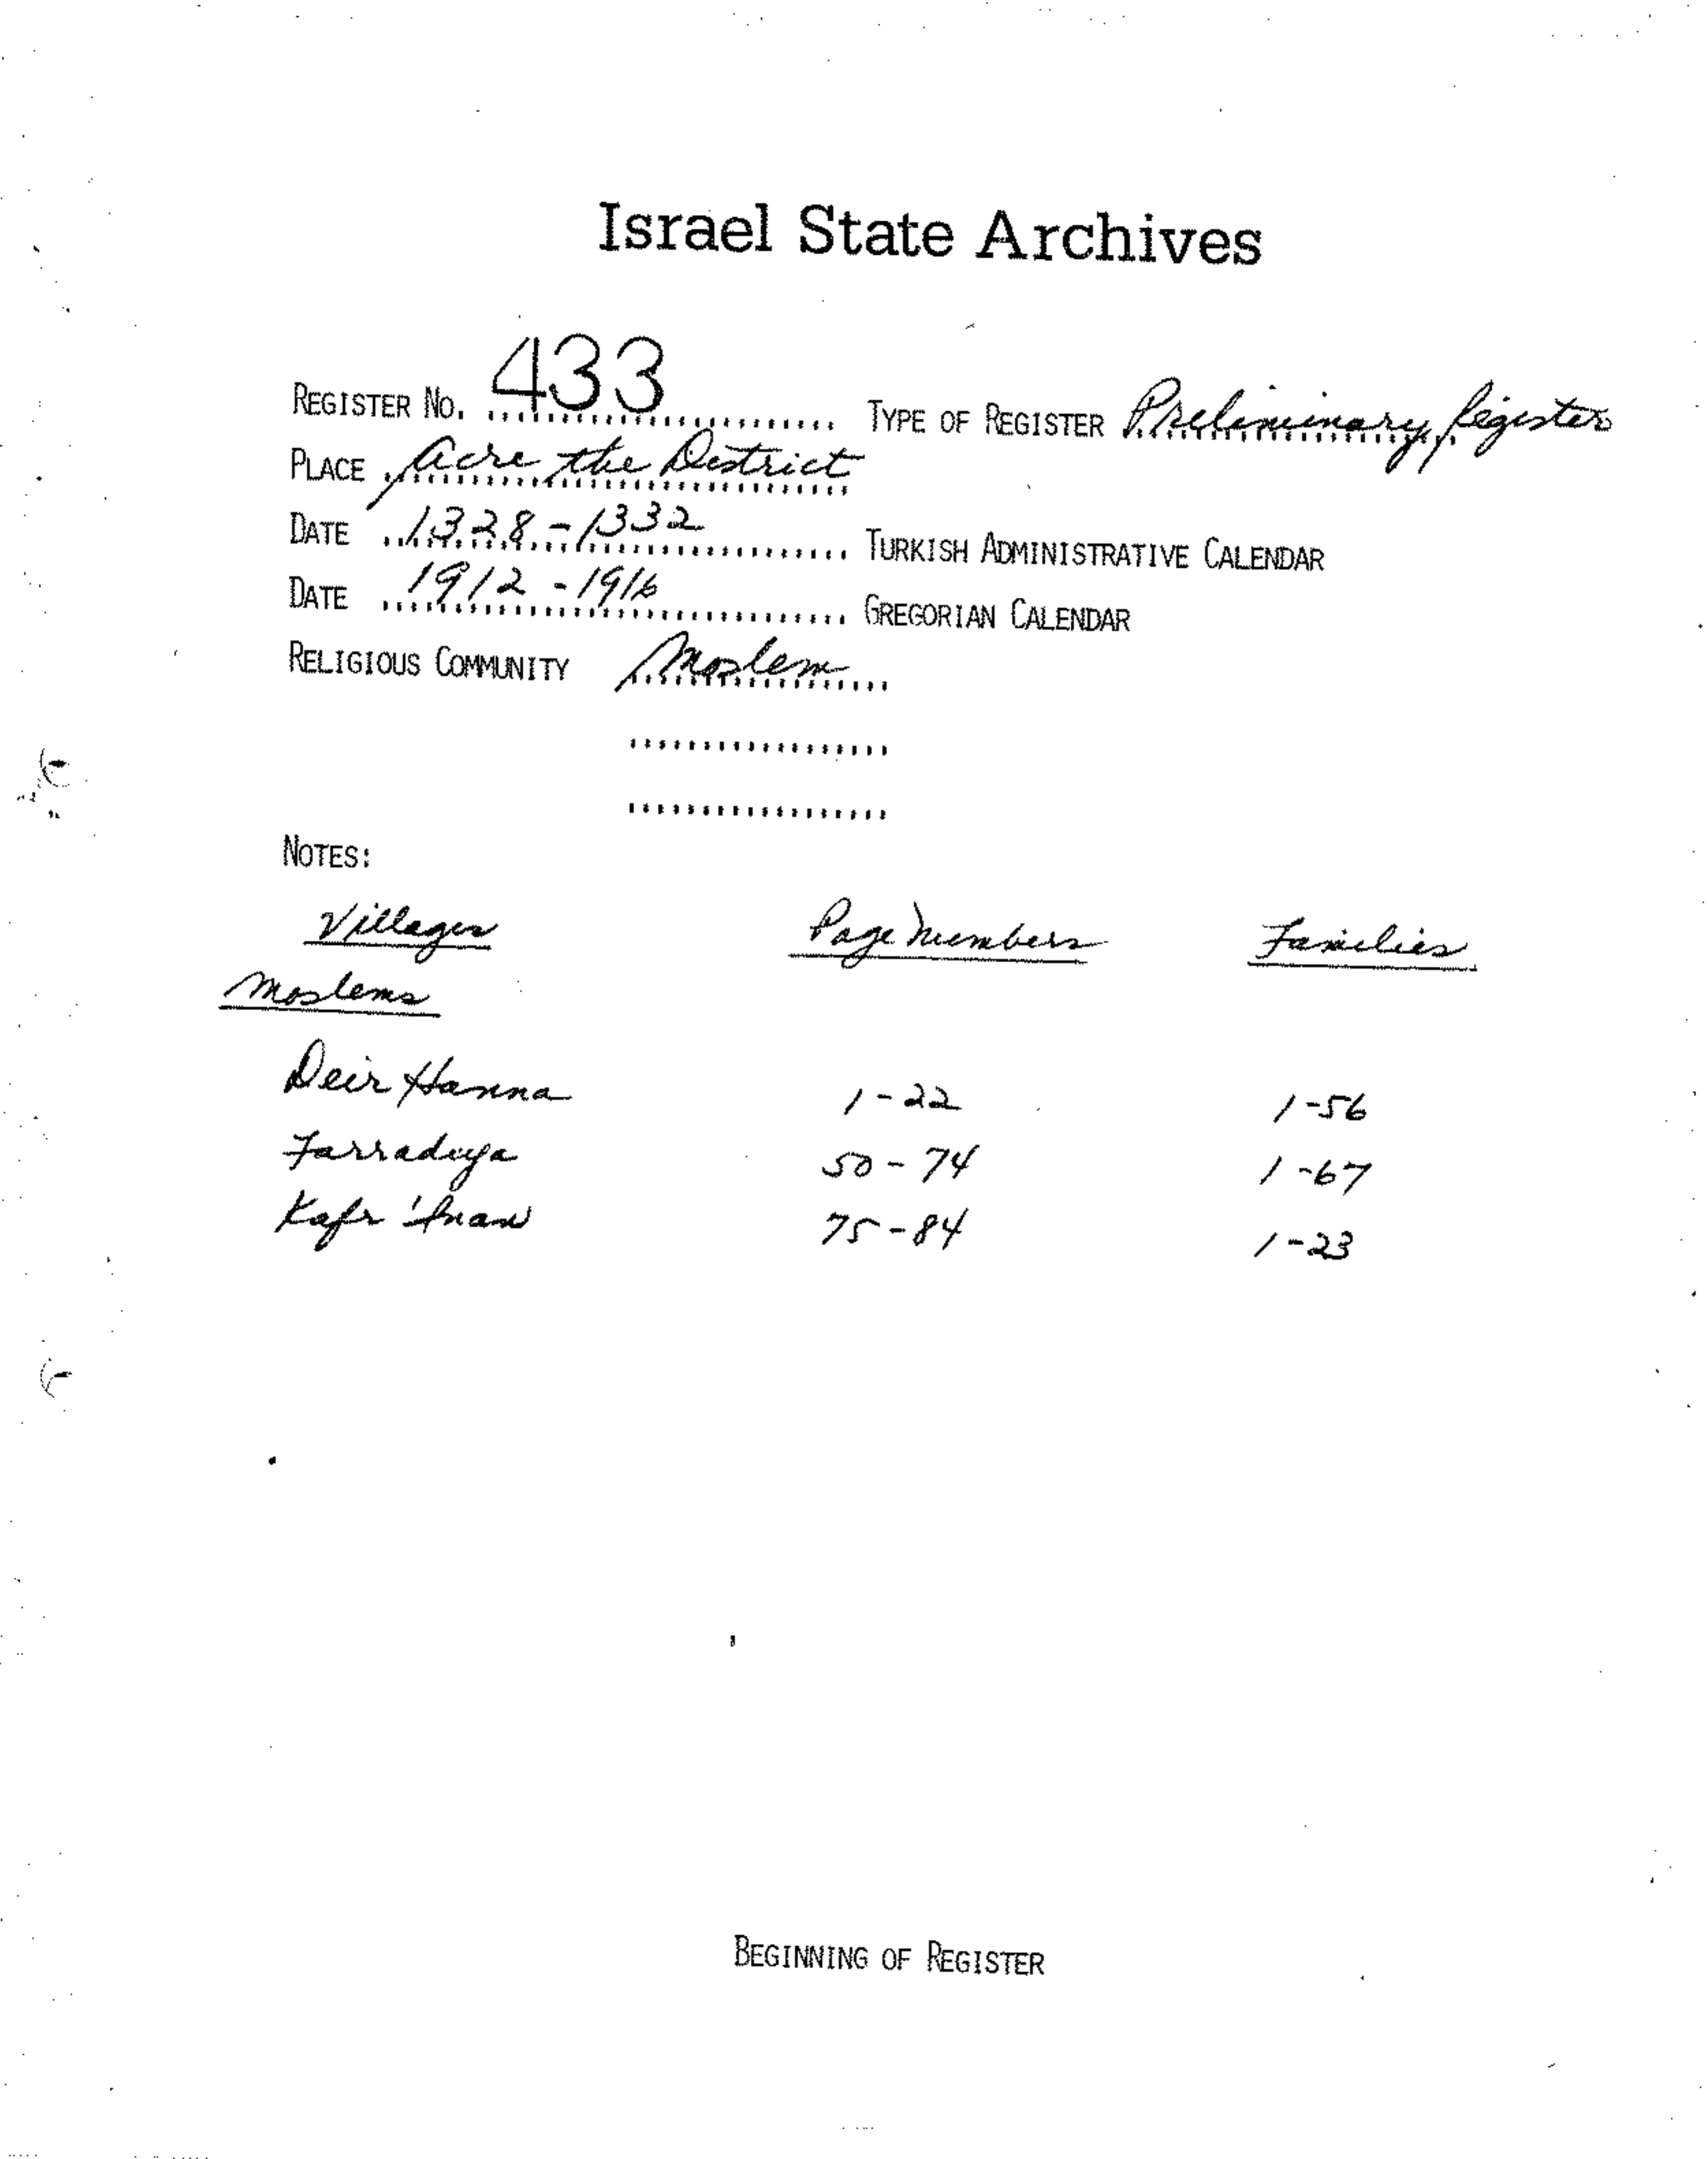 Israel State Archives
REGISTER No. 433 TYPE OF REGISTER Preliminary Register
PLACE Acre the District
DATE 1328-1332 TURKISH ADMINISTRATIVE CALENDAR
DATE 1912-1916 GREGORIAN CALENDAR
RELIGIOUS COMMUNITY Moslem
NOTES:
Villages Page Numbers Families
Moslems
Deir Hanna 1-22 1-56
Farradiyya 50-74 1-67
Kafr 'Inan 75-84 1-23
BEGINNING OF REGISTER